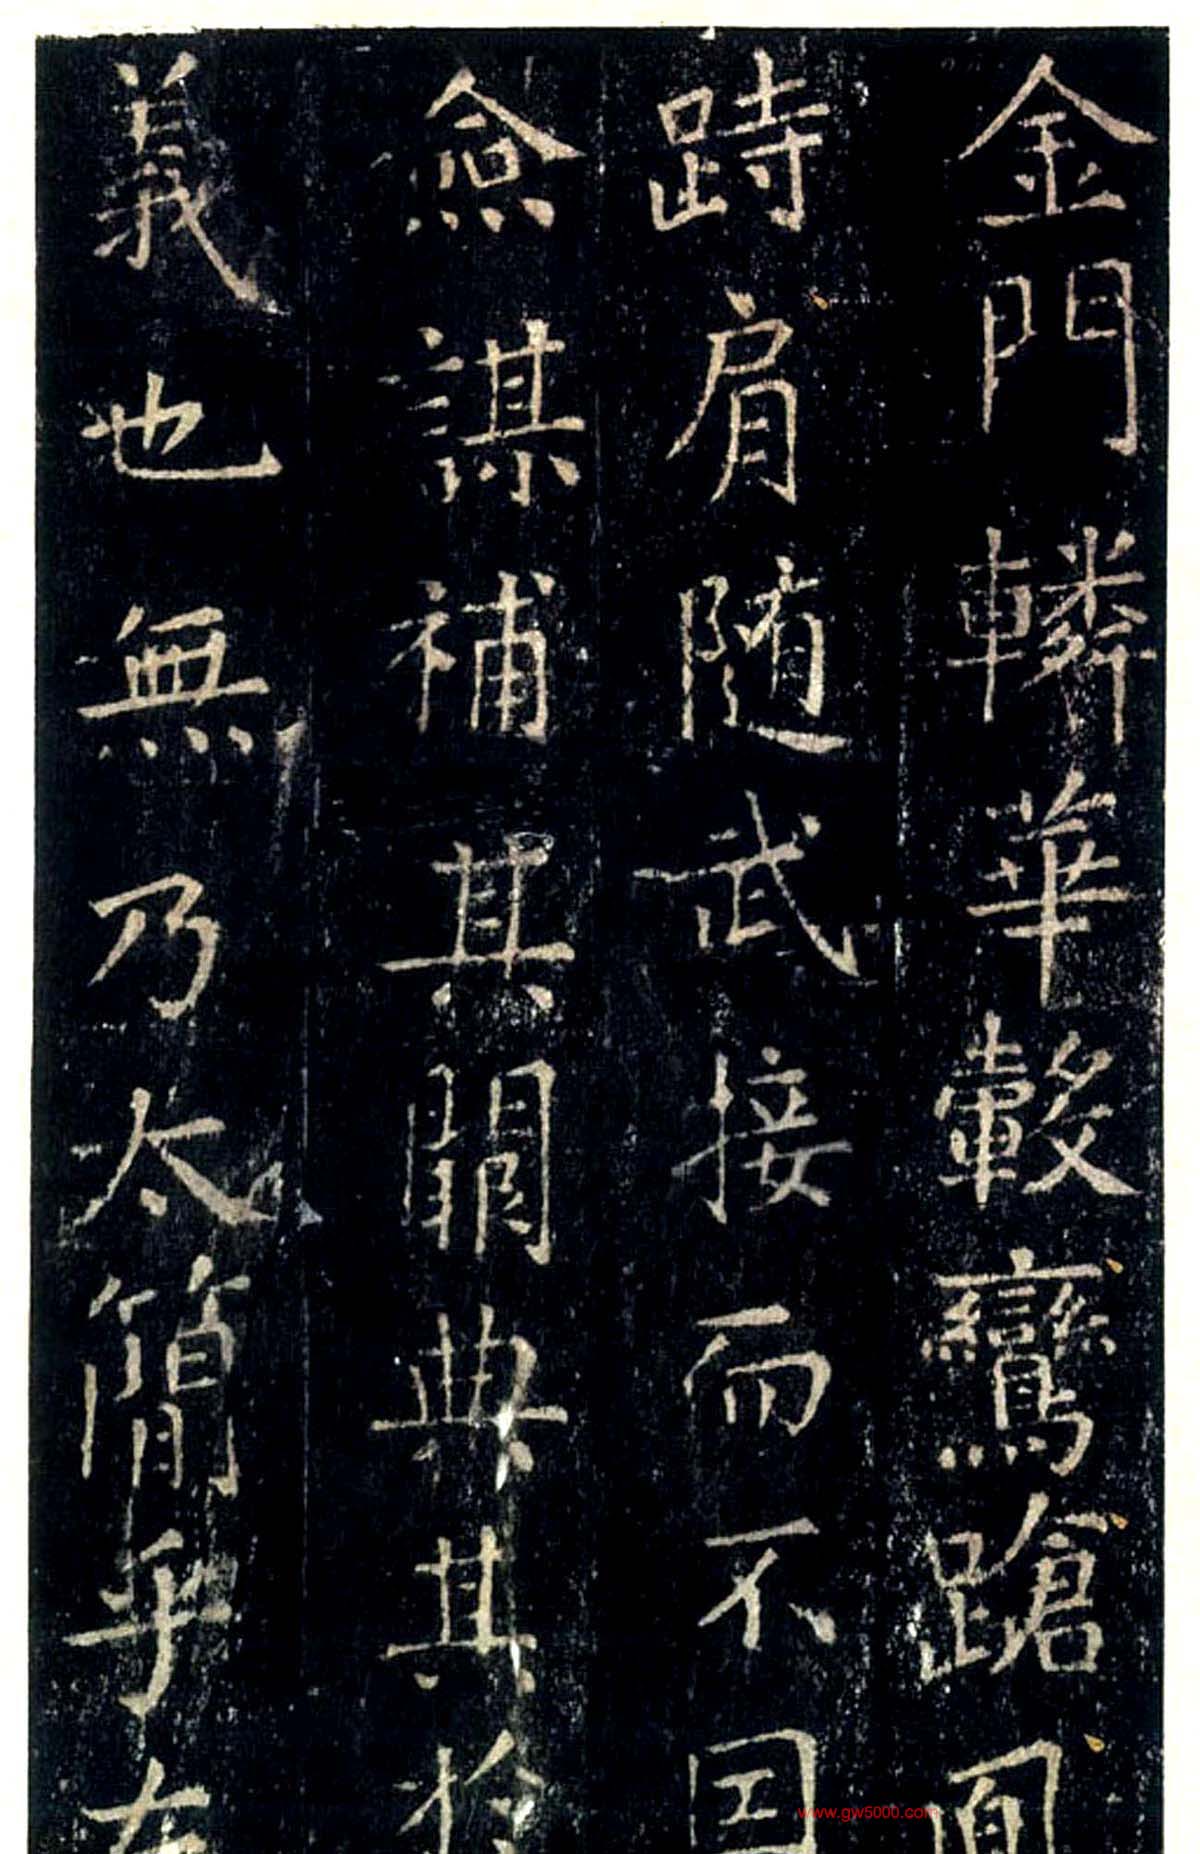 金門轔華轂鸞蹌
跱肩随武接而不
僉謀補其闕典其於
義也無乃太簡乎
www.gw5000.com